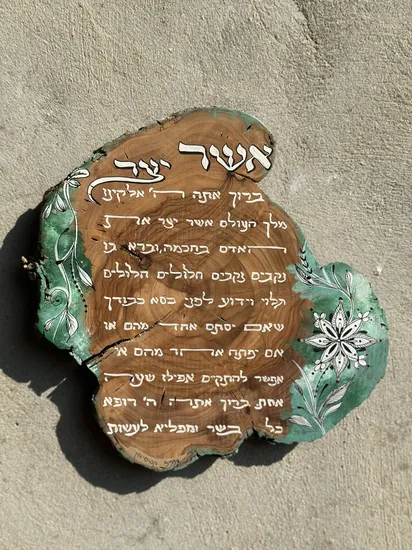 אשר יצר
ברוך אתה ה' אלקינו
מלך העולם אשר יצר את
האדם בחכמה, וברא בו
נקבים נקבים חלולים חלולים
גלוי וידוע לפני כסא כבודך
שאם יסתם אחד מהם או
אם יפתח אחד מהם אי
אפשר להתקיים אפילו שעה
אחת ברוך אתה ה' רופא
כל בשר ומפליא לעשות